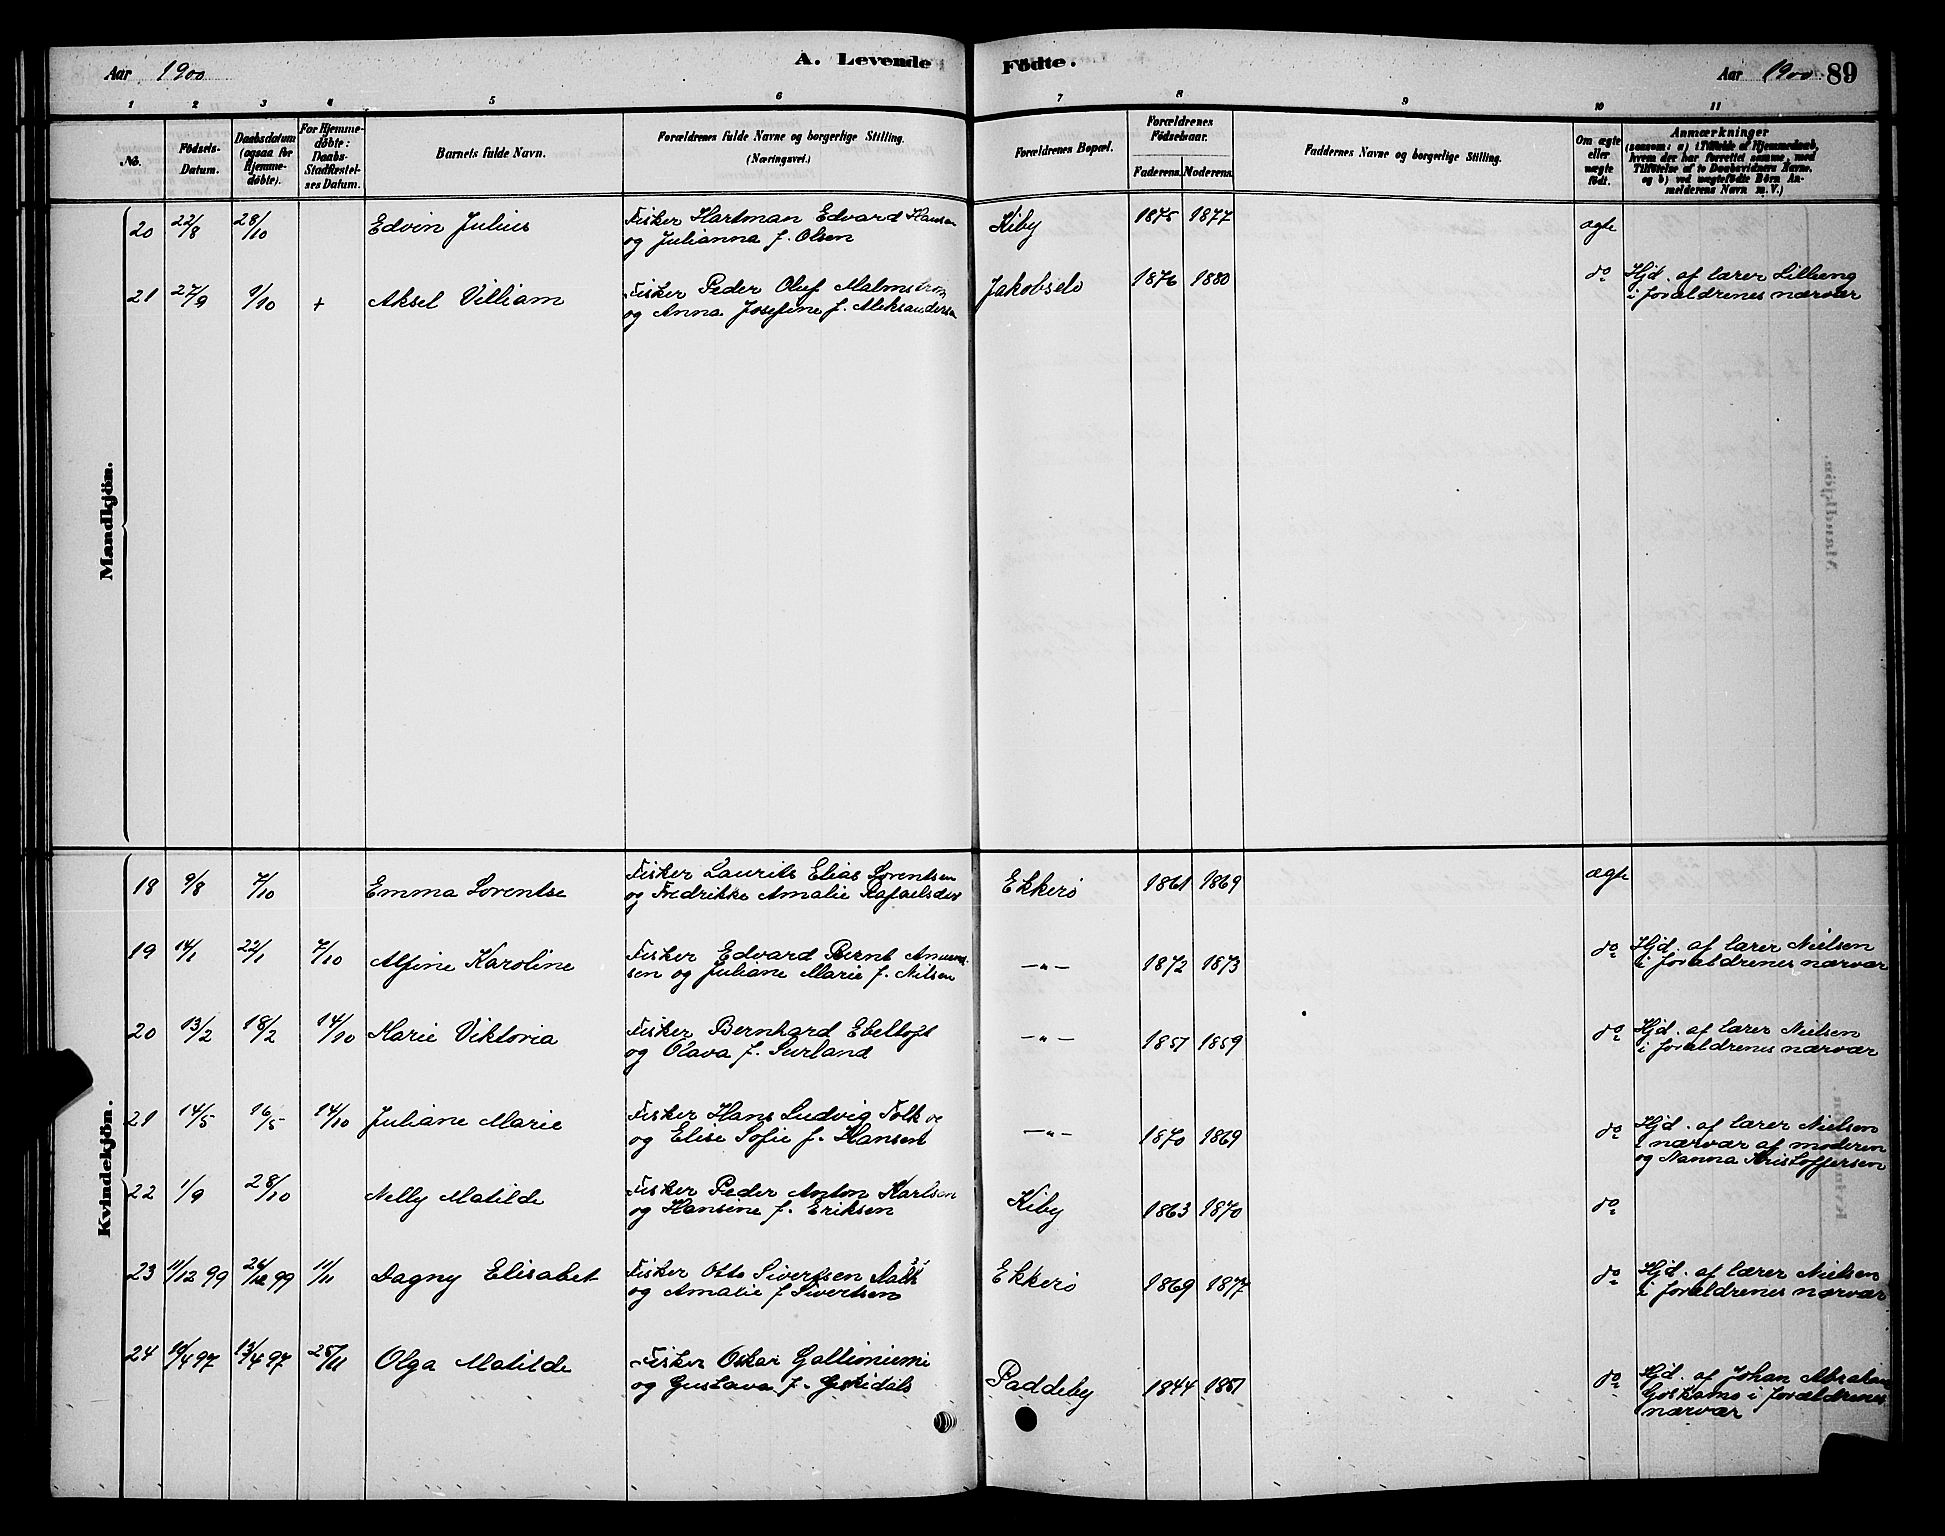 Aar 1900
A. Levende Födte.
Aar 1900 89
1 2 3 4 5 6 7 8 9 10 11
No.
Födsels-
Datum.
Daabsdatum
(ogsaa for
Hjemme-
døbte).
For Hjemme-
døbte:
Daabs-
Stadfæstel-
ses Datum.
Barnets fulde Navn.
Forældrenes fulde Navne og borgerlige Stilling.
(Næringsvei.)
Forældrenes Bopæl.
Forældrenes
Födselsaar.
Faderens. Moderens.
Faddernes Navne og borgerlige Stilling.
Om ægte
eller
uægte
födt.
Anmærkninger
(saasom: a) i Tilfælde af Hjemmedaab,
hvem der har forrettet samme, med
Tilföielse af to Daabsvidners Navne,
og b) ved uægtefödte Börn An-
melderens Navn m. V.)
Mandkjön.
20 22/8 28/10 Edvin Julius
Fisker Hartman Edvard Hansen
og Julianna f. Olsen
Kiby 1875 1877 ægte
21 27/9 9/10 + Aksel Villiam
Fisker Peder Oluf Malmstrøm
og Anna Josefine f. Aleksandersen
Jakobselv 1876 1880 do
Hjd. af lærer Lilleeng
i forældrenes nærvær
Kvindekjön.
18 9/8 7/10 Emma Lorentse
Fisker Laurits Elias Lorentsen
og Fredrikke Amalie Rafaelsdtr
Ekkerö 1861 1869 ægte
19 14/1 22/1 7/10 Alfine Karoline
Fisker Edvard Bernt
sen og Juliane Marie f. Nilsen
—"— 1872 1873 do
Hjd. af lærer Nielsen
i forældrenes nærvær
20 13/2 18/2 14/10 Marie Viktoria
Fisker Bernhard Ebeltoft
og Olava f. Surland
—"— 1851 1859 do
Hjd. af lærer Nielsen
i forældrenes nærvær
21 14/5 16/5 14/10 Juliane Marie
Fisker Hans Ludvig Folk og
og Elise Sofie f. Hansen
—"— 1870 1869 do
Hjd. af lærer Nielsen
i nærvær af moderen
og Nanna Kristoffersen
22 1/9 28/10 Nelly Matilde
Fisker Peder Anton Karlsen
og Hansine f. Eriksen
Kiby 1863 1870 do
23 11/12 99 26/12 99 11/11 Dagny Elisabet
Fisker Otto Sivertsen
og Amalie f Sivertsen
Ekkerö 1869 1877 do
Hjd. af lærer Nielsen
i forældrenes nærvær
24 10/4 97 13/4 97 25/11 Olga Matilde
Fisker Oskar Gallioniemi
og Gustava f.
Paddeby 1844 1851 do
Hjd. af Johan Abraham
i forældrenes
nærvær